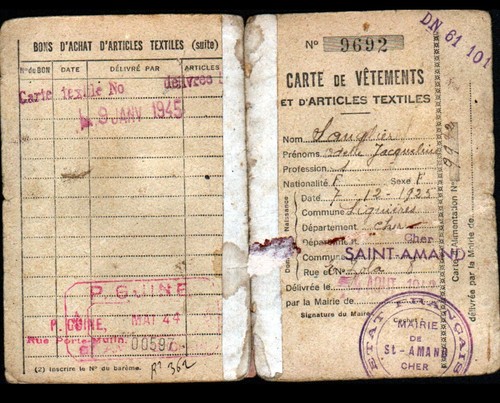 BONS D'ACHAT D'ARTICLES TEXTILES (suite)
Nº de BON DATE DÉLIVRÉ PAR ARTICLES
Carte textile No délivrée
9 JANV 1945
P. GUINE
P. GUINE, MAI 44
Rue Porte-Mutin.
00596
(2) Inscrire le Nº du barème.
Nº 9692
DN 61 101
CARTE DE VÊTEMENTS
ET D'ARTICLES TEXTILES
Nom
Prénoms Jacqueline
Profession
Nationalité F Sexe F
Date 7-12-1925
Commune Lignières
Département Cher
Département Cher
Commune SAINT-AMAND
Rue et Nº
Délivrée le AOUT
par la Mairie de
Signature du Maire Cachet
Naissance
Carte d'Alimentation Nº
délivrée par la Mairie de
ÉTAT FRANÇAIS
MAIRIE
DE
St-AMAND
CHER